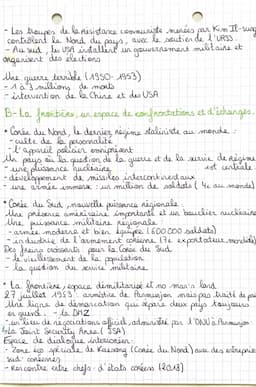 - Les troupes de la résistance communiste menées par Kim Il-sung
contrôlent le Nord du pays, avec le soutien de l'URSS.
- Au sud, les USA installent un gouvernement militaire et
organisent des élections
Une guerre terrible (1950-1953)
- 1 à 3 millions de morts
- intervention de la Chine et des USA
B- La frontière, un espace de confrontations et d'échanges.
• Corée du Nord, le dernier régime stalinien au monde :
- culte de la personnalité
- l'appareil policier omniprésent
Un pays où la question de la guerre et de la survie du régime
est centrale :
- une puissance nucléaire
- développement de missiles intercontinentaux
- une armée immense : un million de soldats (4e au monde)
• Corée du Sud, nouvelle puissance régionale :
Une présence américaine importante et un bouclier nucléaire
Une puissance militaire régionale
- armée moderne et bien équipée (600 000 soldats)
- industrie de l'armement coréenne (7e exportateur mondial)
Des freins croissants pour la Corée du Sud
- le vieillissement de la population
- la question du service militaire
• La frontière, espace démilitarisé et no man's land
27 juillet 1953 : armistice de Panmunjom mais pas traité de paix
Une ligne de démarcation qui sépare deux pays toujours
en guerre : la DMZ
- un lieu de négociations officiel, administrée par l'ONU à Panmunjom :
la Joint Security Area (JSA)
Espace de dialogue intercoréen :
- Zone éco spéciale de Kaesong (Corée du Nord) avec des entreprises
sud-coréennes
- rencontre entre chefs d'états coréens (2018)